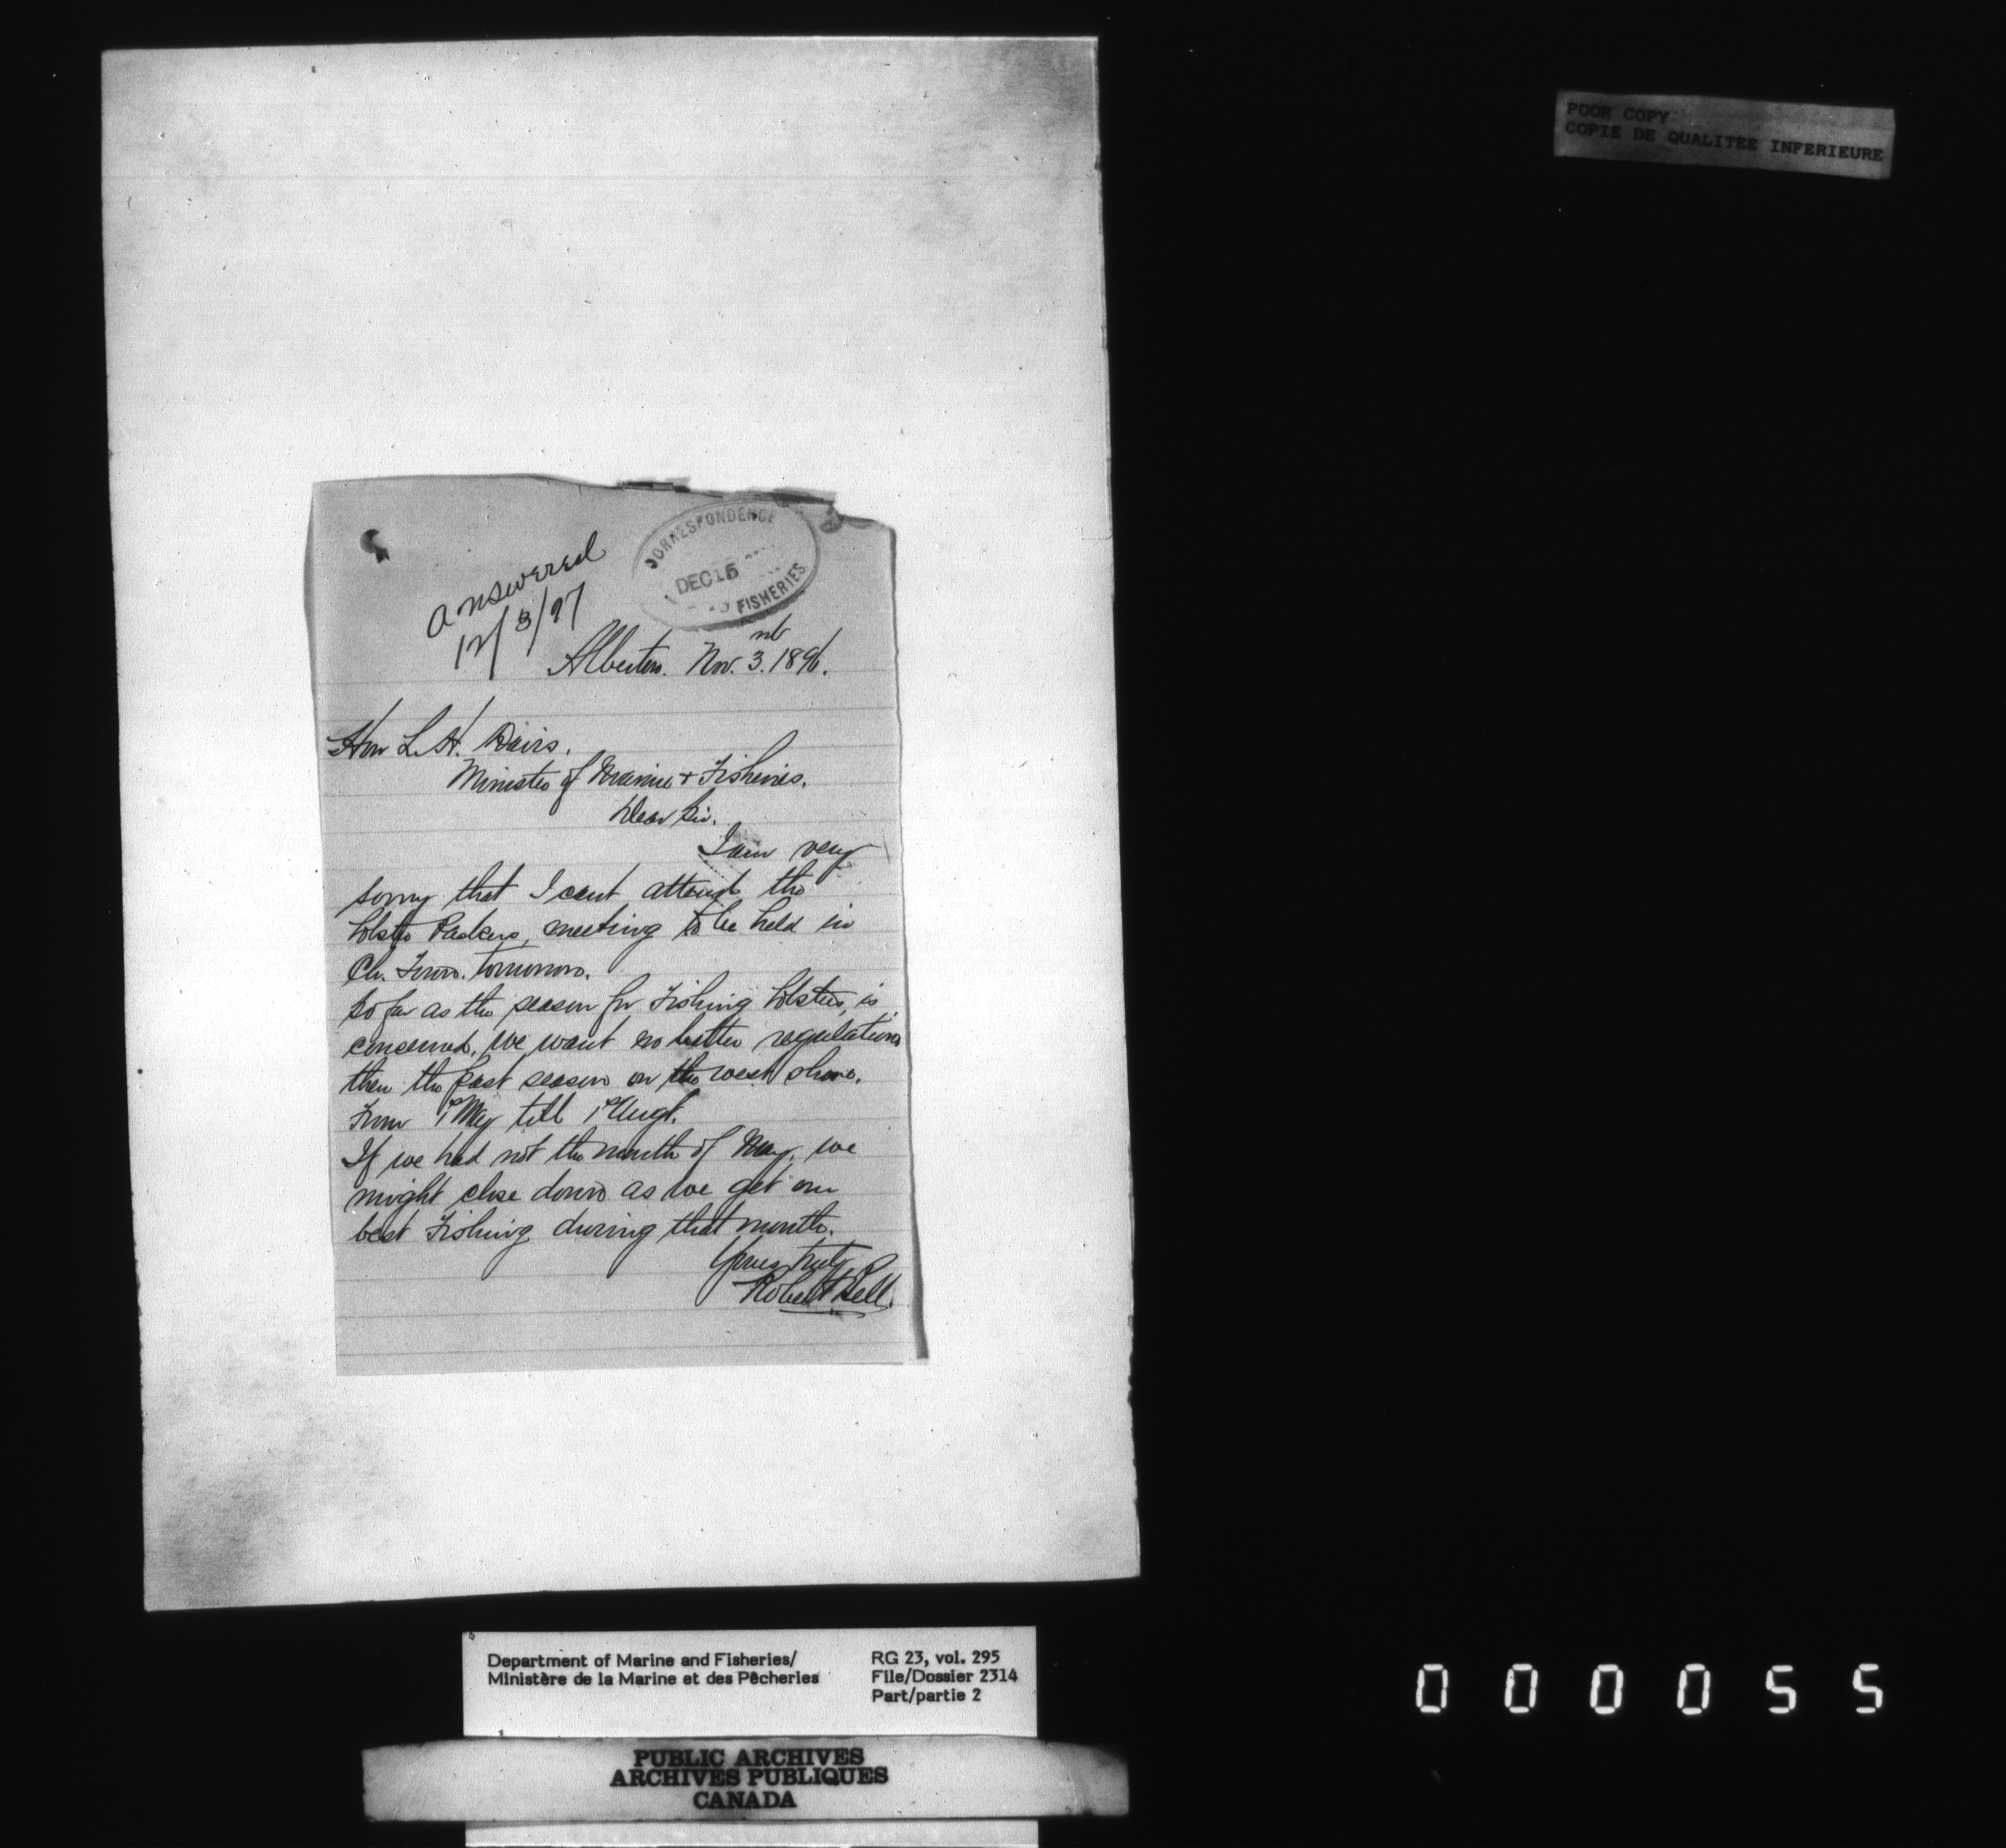 POOR COPY
COPIE DE QUALITEE INFERIEURE
CORRESPONDENCE
DEC 15
FISHERIES
answered
12/3/97
Alberton. Nov. 3. 1896.
Hon L. H. Davis.
Minister of Marine & Fisheries.
Dear Sir.
I am very
sorry that I cant attend the
Lobster Packers, meeting to be held in
Ch. Town. tomorrow.
So far as the season for Fishing Lobsters, is
concerned, we want no better regulations
then the past season on the west shore.
From 1st May till 1st Augt.
If we had not the month of May, we
might close down as we get our
best Fishing during that month.
Yours truly
Robert Bell.
Department of Marine and Fisheries/
Ministère de la Marine et des Pêcheries
RG 23, vol. 295
File/Dossier 2314
Part/partie 2
PUBLIC ARCHIVES
ARCHIVES PUBLIQUES
CANADA
000055